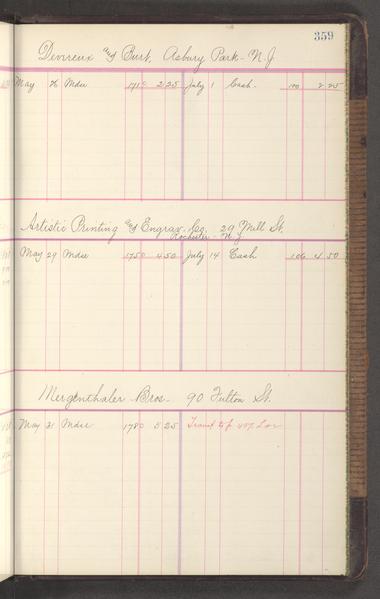 359
Devereux and Burt, Asbury Park - N.J.
May 26 Mdse 1710 2 25 July 1 Cash 100 2 25
Artistic Printing and Engrav. Co. 29 Mill St.
Rochester - N.Y.
May 29 Mdse 1750 4 50 July 14 Cash 106 4 50
Mergenthaler Bros - 90 Fulton St.
May 31 Mdse 1780 5 25 Transf to